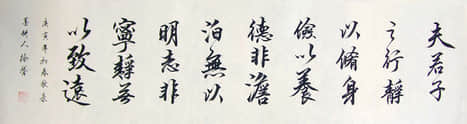 夫君子
之行靜
以脩身
儉以養
德非澹
泊無以
明志非
寧靜無
以致遠
庚寅年初春